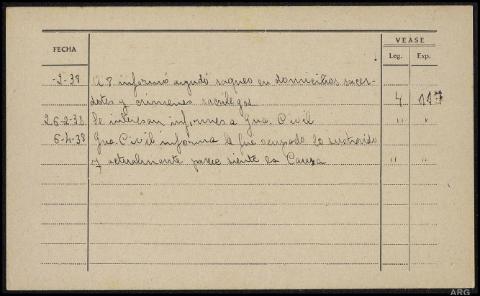 VEASE
FECHA Leg. Exp.
-3-38 A.P. informó ayudó saqueo en domicilios sacer-
dotes y crimenes sacrilegos 4 117
26-2-38 Se interesan informes a Gua. Civil " "
6-4-38 Gua. Civil informa le fue ocupado lo sustraido " "
y actualmente parece siente la Causa
ARG